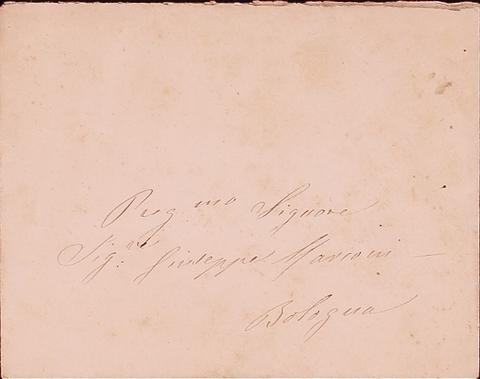 Preg.mo Signore
Sig.re Giuseppe Marconi
Bologna